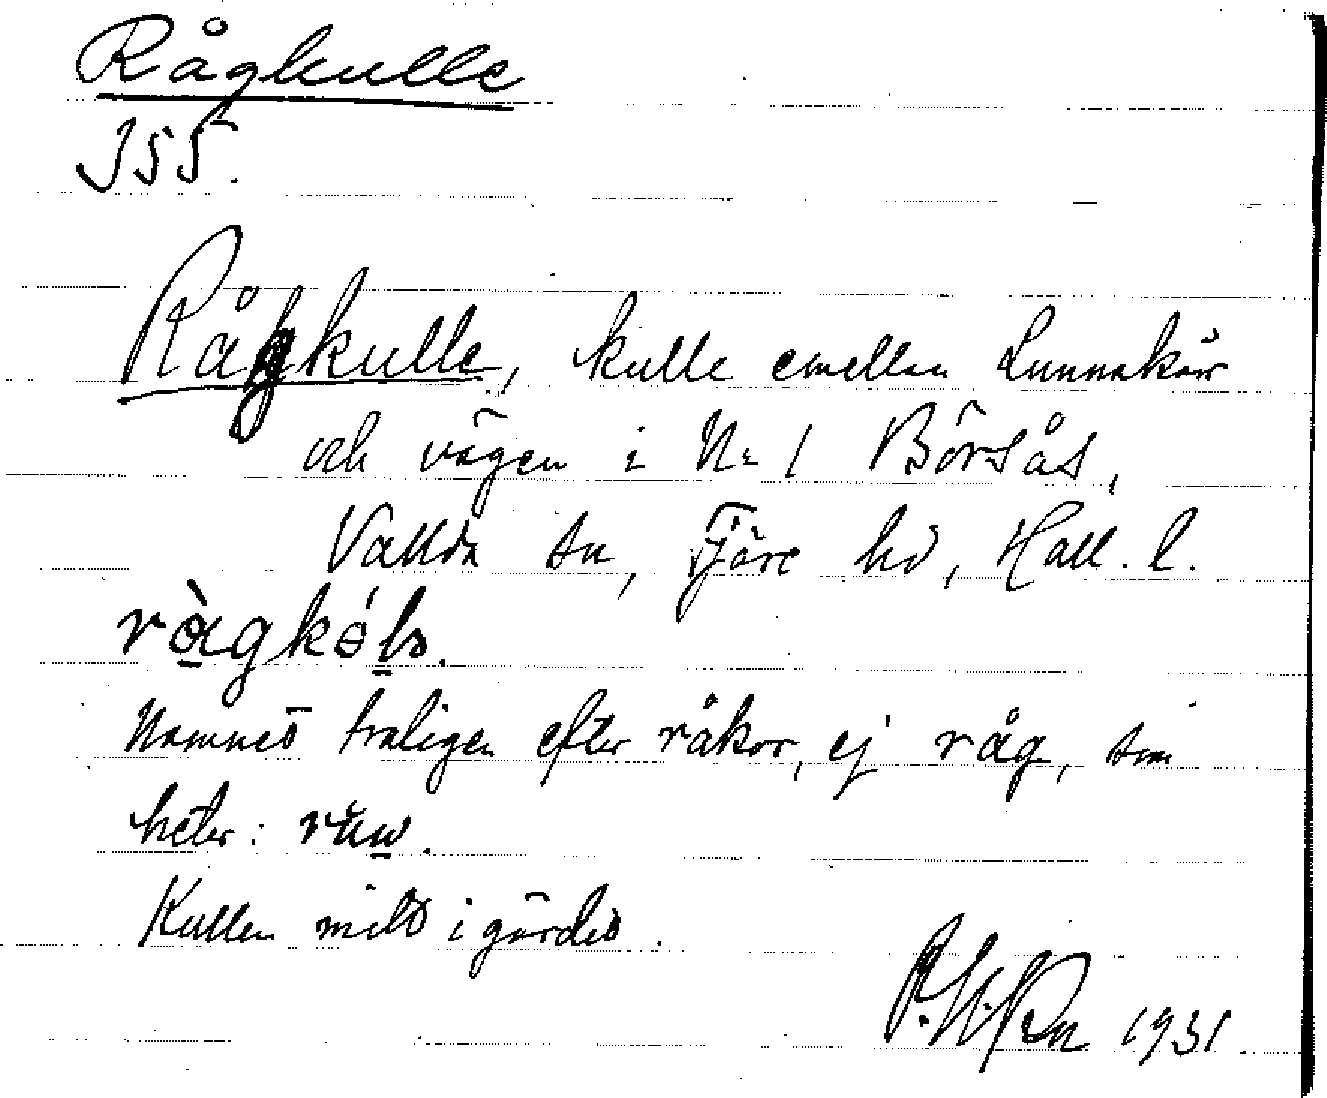 Rågkulle
I55.
Rågkulle, kulle emellan Lunnekärr
och vägen i Nr 1 Börsås,
Vallda sn, Fjäre hd, Hall. l.
Namnes troligen efter råkor, ej råg, som
heter: 
Kullen mitt i gärdet.
1931